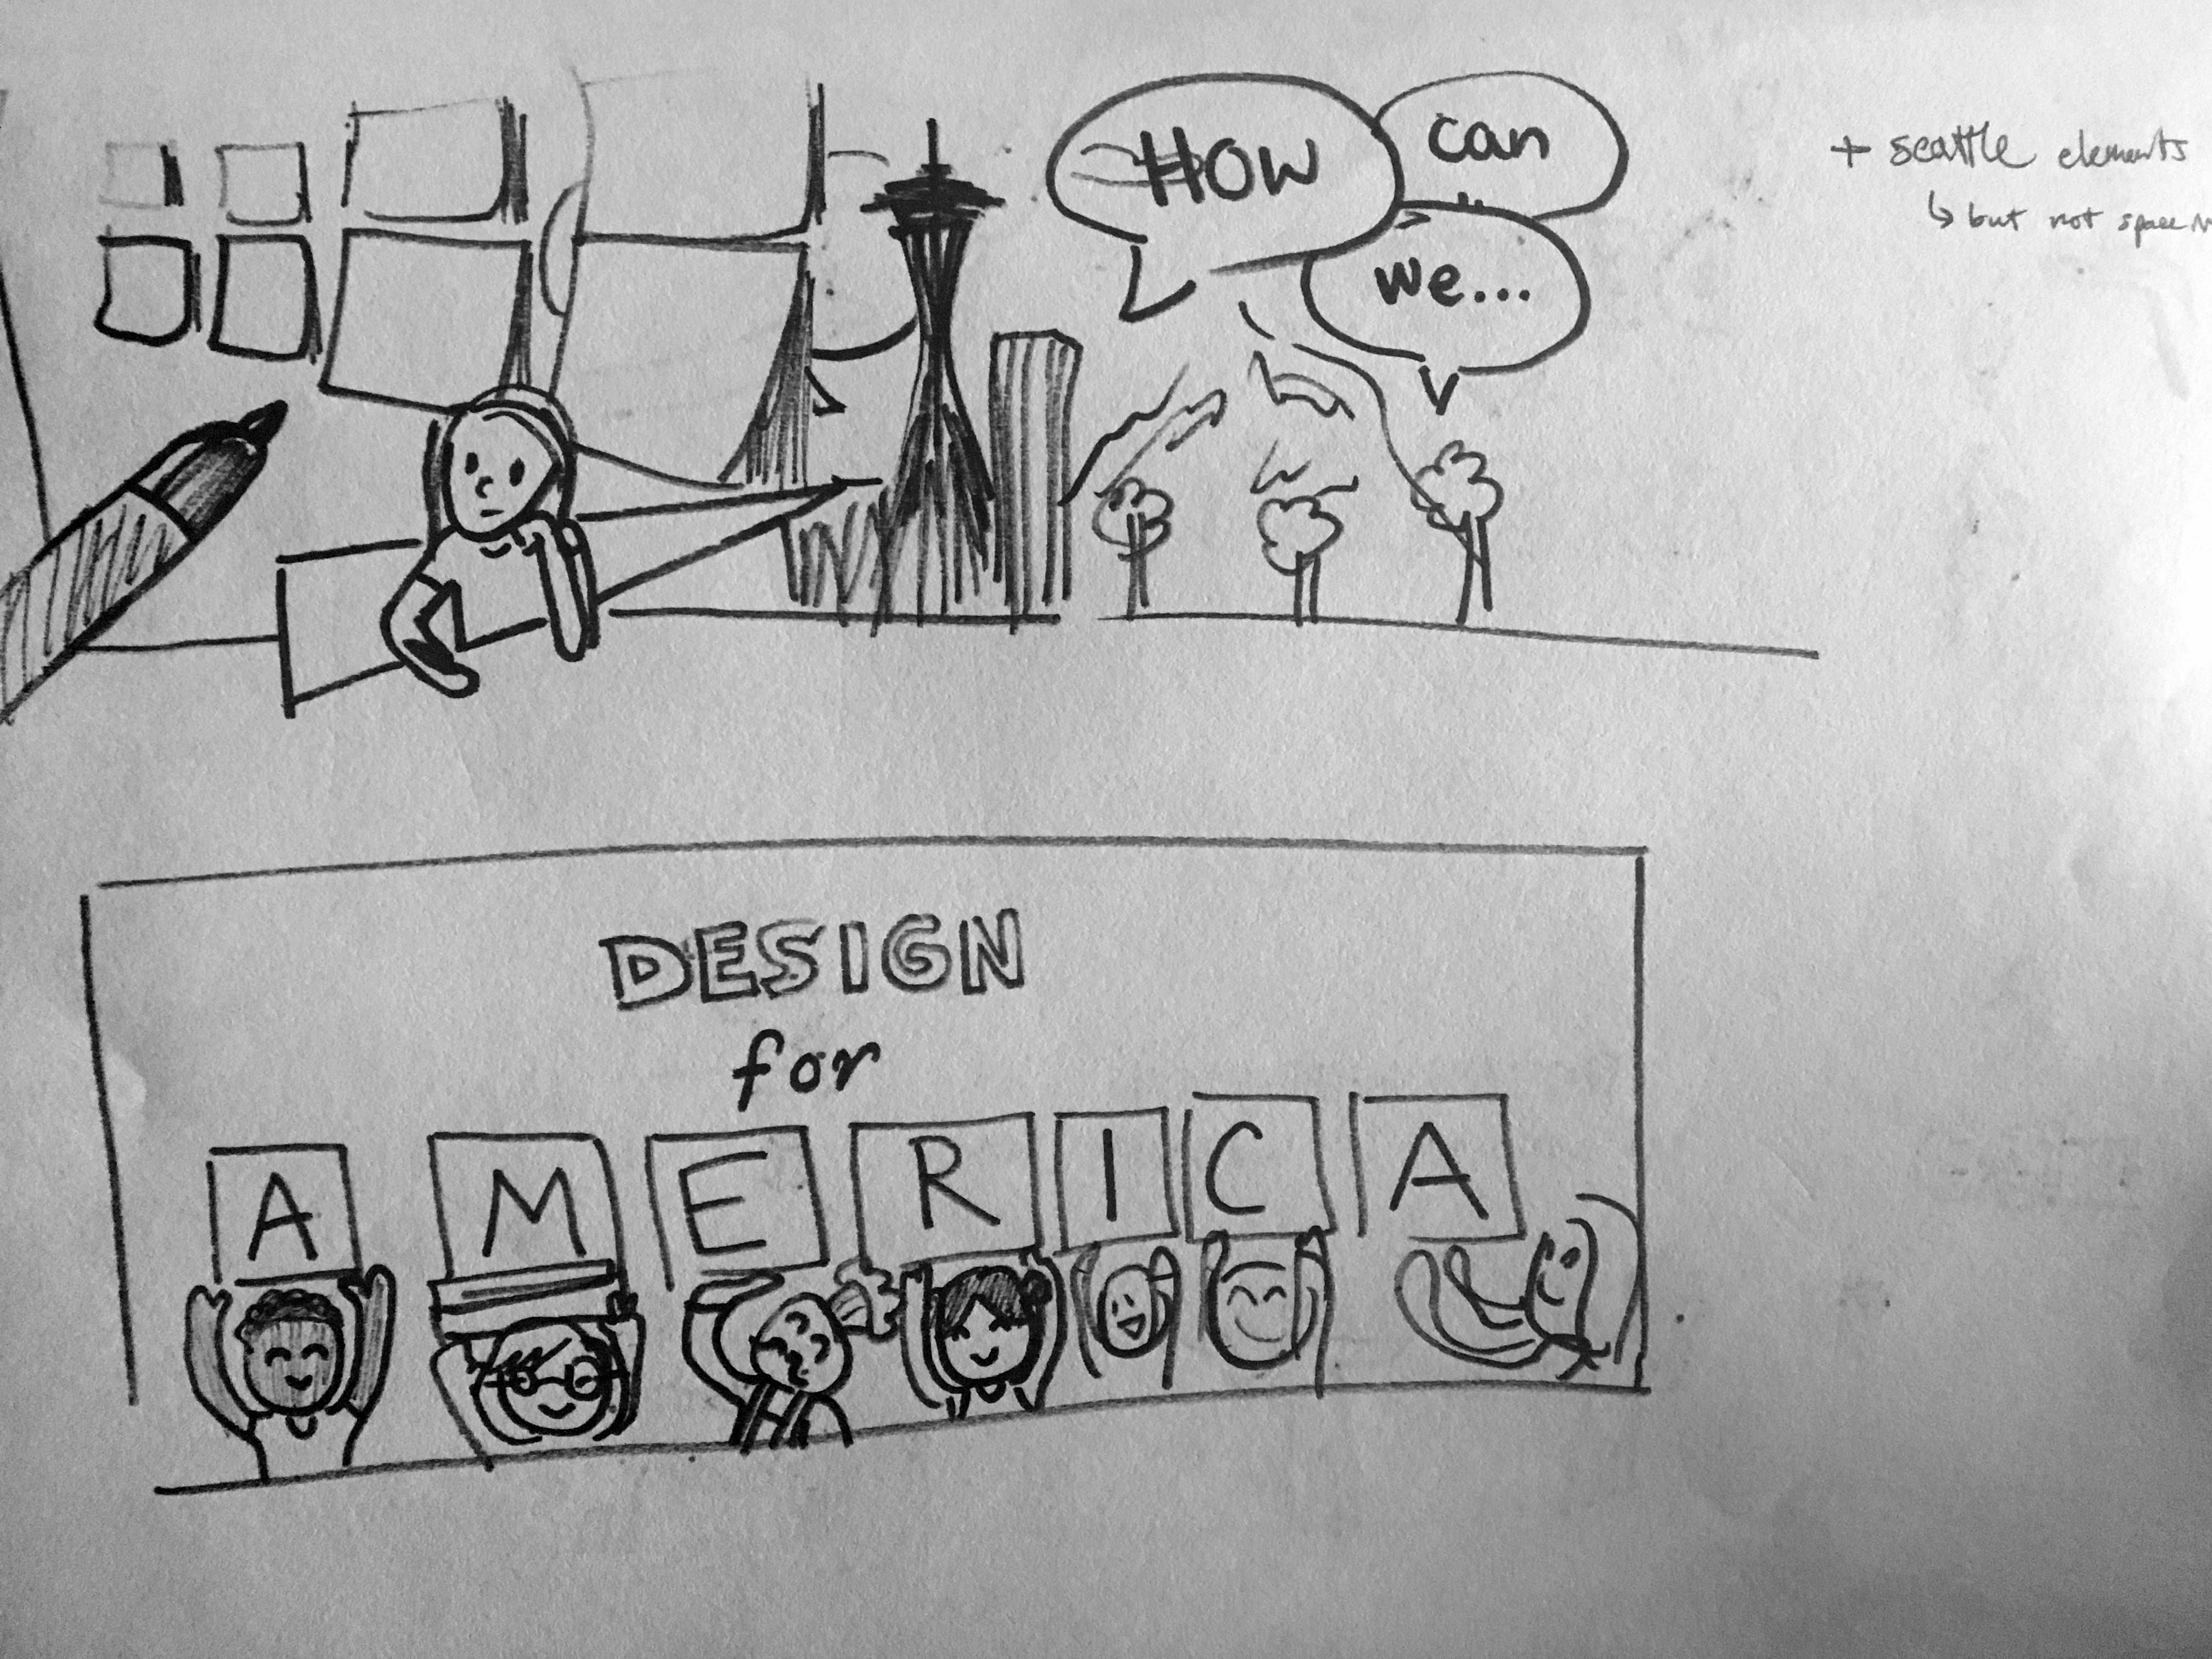 How
can
we...
+ seattle elements
↳ but not space
DESIGN
for
AMERICA